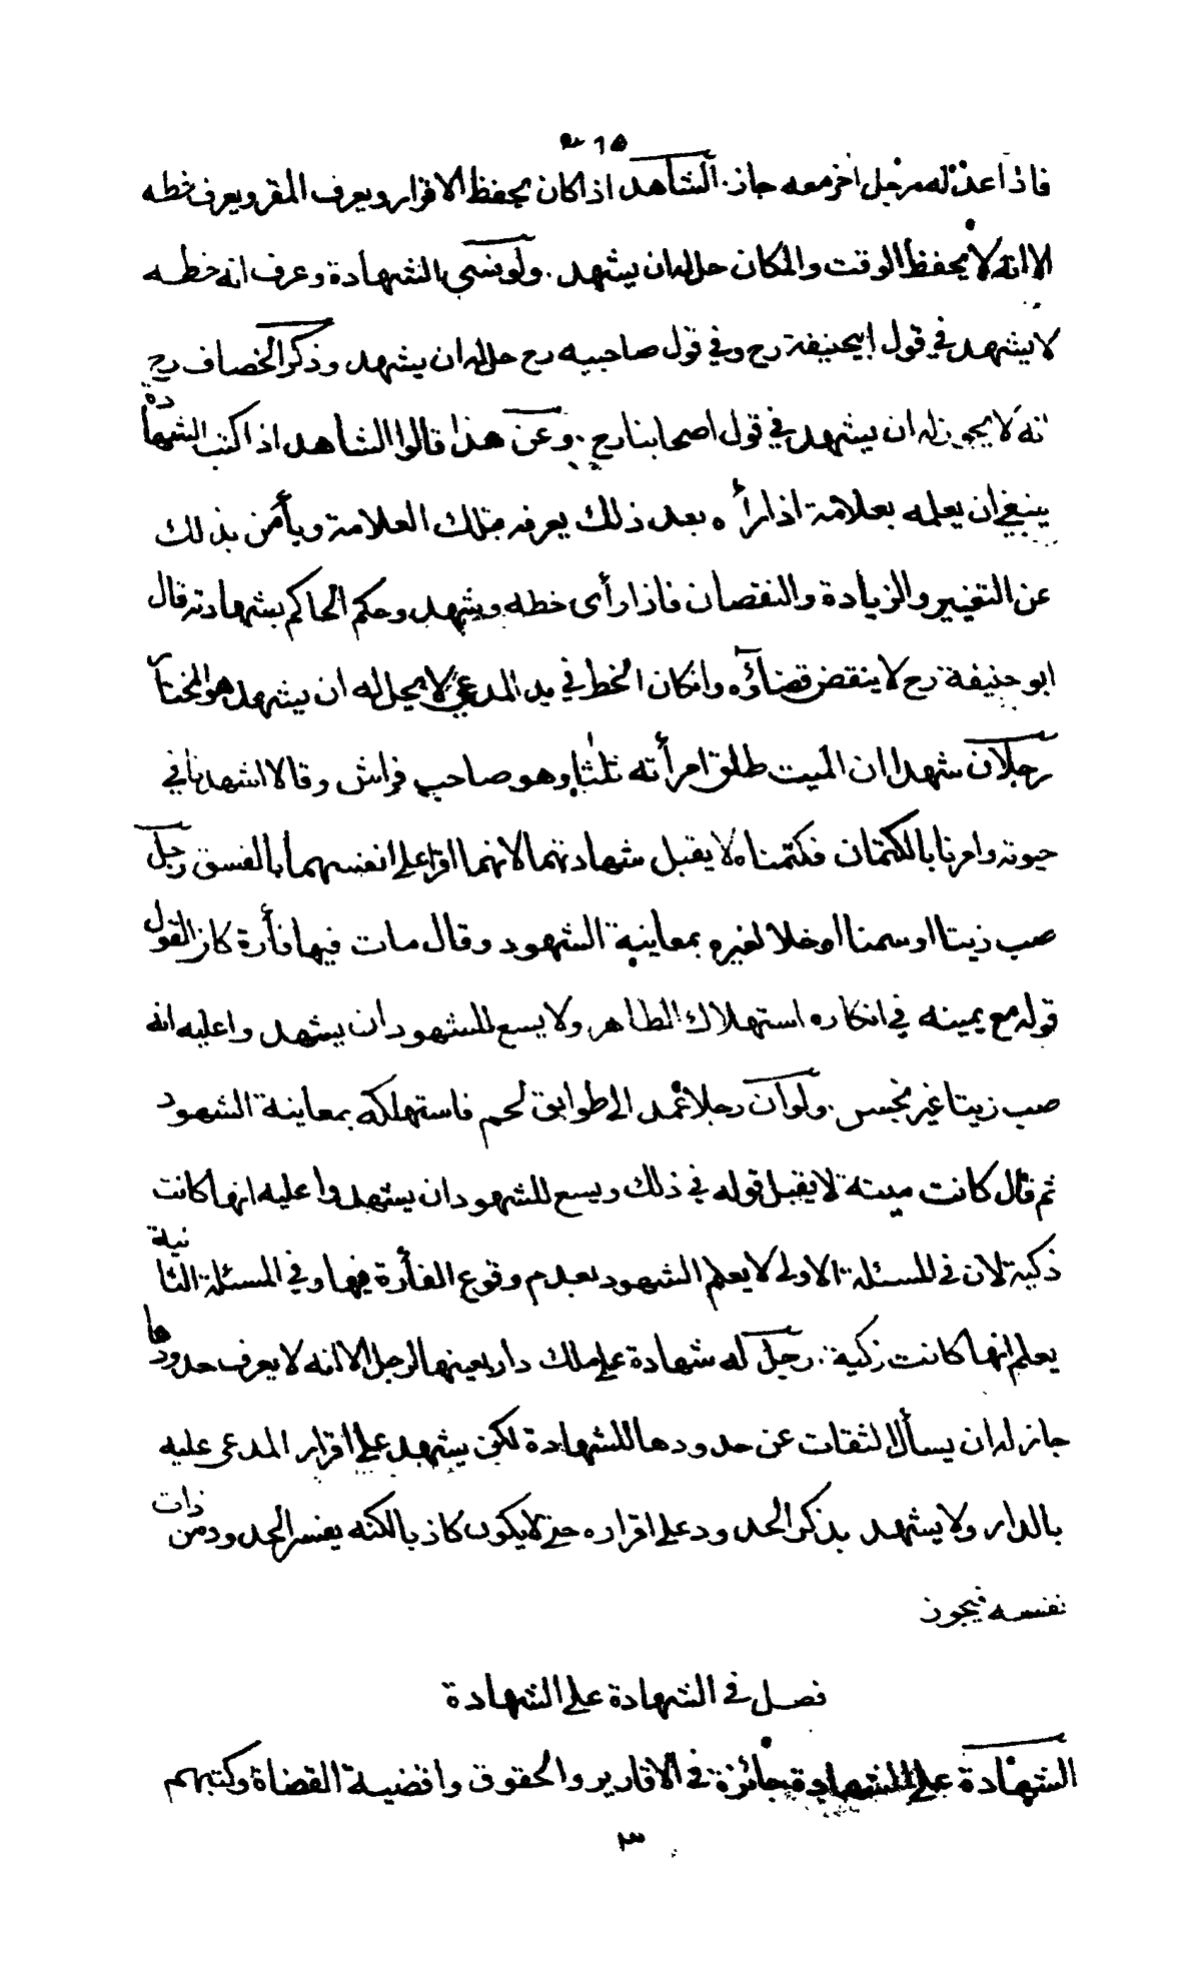 ٦١٥
فاذا عدله رجل اخر معه جاز. الشاهد اذا كان يحفظ الاقرار ويعرف المقر ويعرف خطه
الا انه لا يحفظ الوقت والمكان حل له ان يشهد. ولو نسي الشهادة وعرف انه خطه
لا يشهد في قول ابيحنيفة رح وفي قول صاحبيه رح حل له ان يشهد وذكر الخصاف رح
انه لا يجوز له ان يشهد في قول اصحابنا رح. وعن هذا قالوا الشاهد اذا كتب الشهادة
ينبغي ان يعلمه بعلامة اذا رأه بعد ذلك يعرفه بتلك العلامة ويأمن بذلك
عن التغيير والزيادة والنقصان فاذا رأى خطه ويشهد وحكم الحاكم بشهادته قال
ابو حنيفة رح لا ينقض قضاؤه وانكان الخط في يد المدعي لا يحل له ان يشهد هو المختار
رجلان شهدا ان الميت طلق امرأته ثلثا وهو صاحب فراش وقالا اشهدنا في
حيوته وامرنا بالكتمان فكتمناه لا يقبل شهادتهما لانهما اقرا على انفسهما بالفسق رجل
صب زيتا او سمنا او خلا لغيره بمعاينة الشهود وقال مات فيها فأرة كان القول
قوله مع يمينه في انكاره استهلاك الطاهر ولا يسع للشهود ان يشهدوا عليه انه
صب زيتا غير نجس. ولو ان رجلا عمد الى طوابق لحم فاستهلكه بمعاينة الشهود
ثم قال كانت ميتة لا يقبل قوله في ذلك ويسع للشهود ان يشهدوا عليه انها كانت
ذكية لان في المسئلة الاولى لا يعلم الشهود بعدم وقوع الفأرة فيها وفي المسئلة الثانية
يعلم انها كانت زكية. رجل له شهادة على ملك دار بعينها لرجل الا انه لا يعرف حدودها
جاز له ان يسأل الثقات عن حدودها للشهادة لكن يشهد على اقرار المدعى عليه
بالدار ولا يشهد بذكر الحدود على اقراره حتى لا يكون كاذبا لكنه يفسر الحدود من ذات
نفسه فيجوز
فصل في الشهادة على الشهادة
الشهادة على الشهادة جائزة في الاقارير والحقوق واقضية القضاة وكتبهم
٣